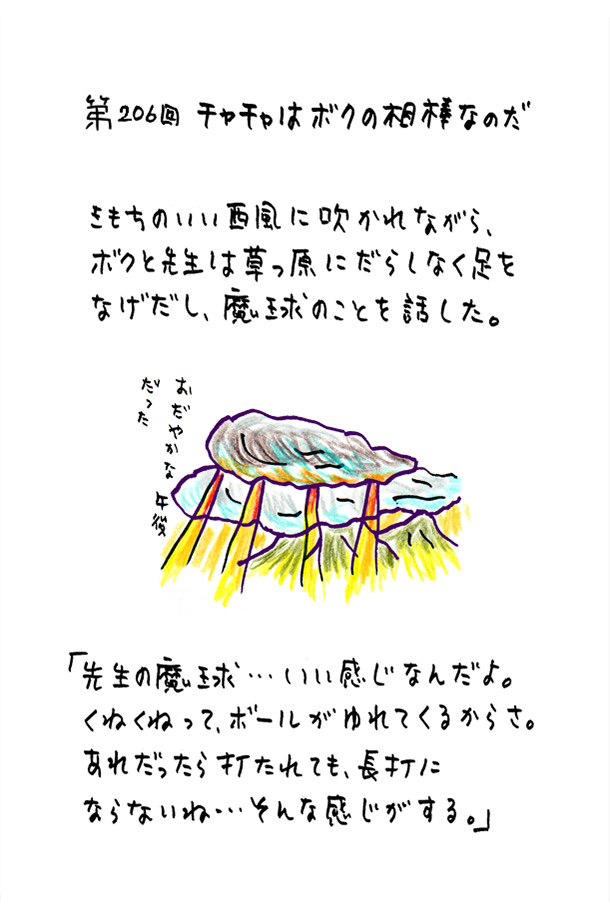 第206回 チャチャはボクの相棒なのだ
きもちのいい西風に吹かれながら、
ボクと先生は草っ原にだらしなく足を
なげだし、魔球のことを話した。
おだやかな午後
だった
「先生の魔球…いい感じなんだよ。
くねくねって、ボールがゆれてくるからさ。
あれだったら打たれても、長打に
ならないね…そんな感じがする。」